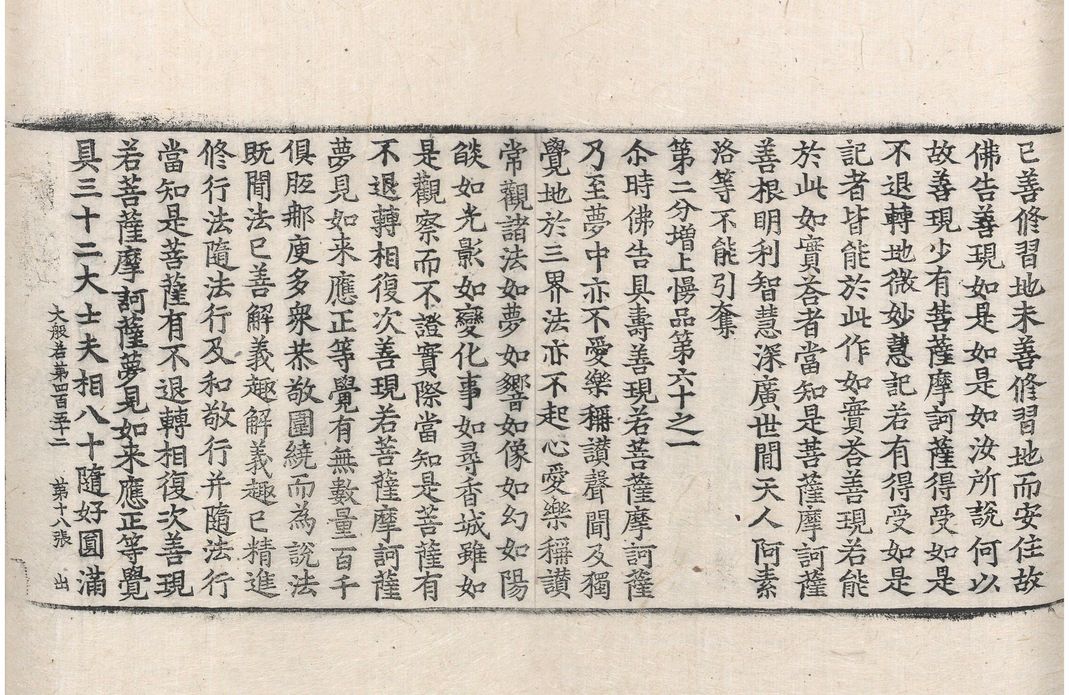 已善修習地未善修習地而安住故
佛告善現如是如是如汝所說何以
故善現少有菩薩摩訶薩得受如是
不退轉地微妙慧記若有得受如是
記者皆能於此作如實荅善現若能
於此如實荅者當知是菩薩摩訶薩
善根明利智慧深廣世間天人阿素
洛等不能引奪
第二分增上慢品第六十之一
尒時佛告具壽善現若菩薩摩訶薩
乃至夢中亦不愛樂稱讚聲聞及獨
覺地於三界法亦不起心愛樂稱讚
常觀諸法如夢如響如像如幻如陽
焰如光影如變化事如尋香城雖如
是觀察而不證實際當知是菩薩有
不退轉相復次善現若菩薩摩訶薩
夢見如来應正等覺有無數量百千
俱胝那庾多衆恭敬圍繞而為說法
既聞法已善解義趣解義趣已精進
修行法隨法行及和敬行并隨法行
當知是菩薩有不退轉相復次善現
若菩薩摩訶薩夢見如来應正等覺
具三十二大士夫相八十隨好圓滿
大般若第四百五十二 第十八張 出